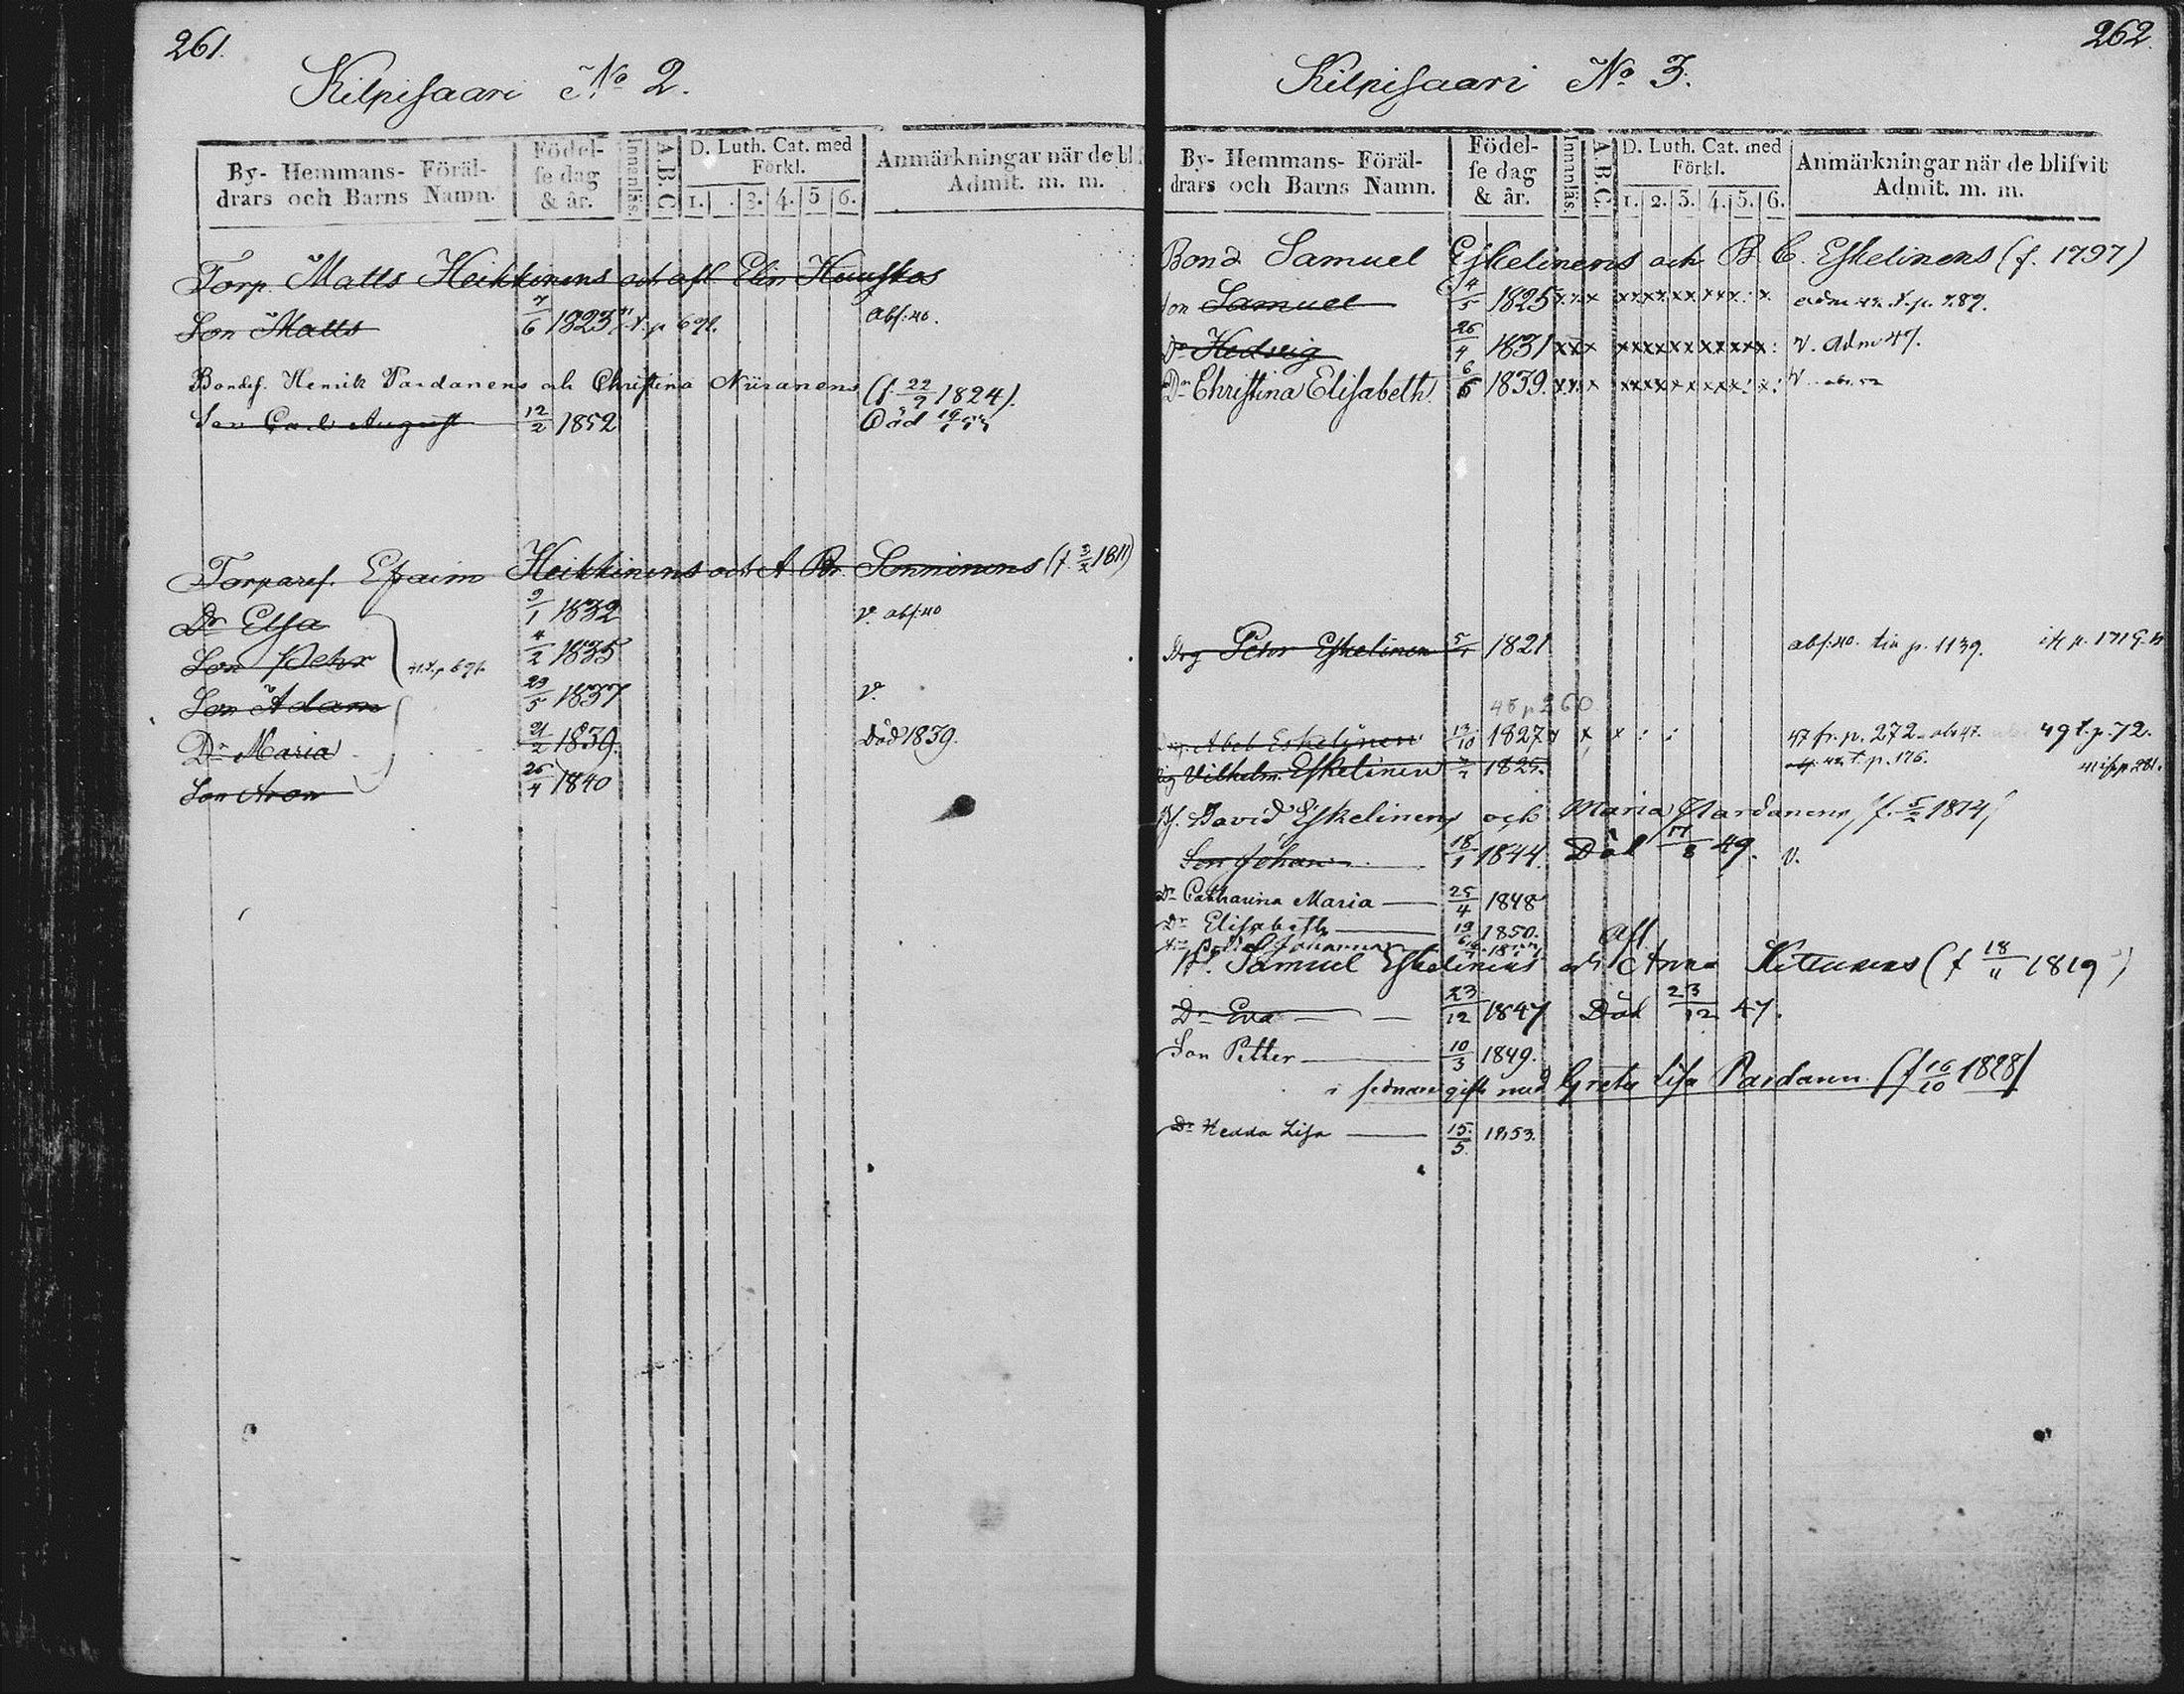 261.
Kilpisaari No 2.
By- Hemmans- Föräl-
drars och Barns Namn.
Födel-
se dag
& år.
Innanläs.
A.B.C
D. Luth. Cat. med
Förkl.
1. . 3. 4. 5 6.
Anmärkningar när de bli
Admit. m. m.
Torp. Matts Heikkinens och afl Elin Huuskos
Son Matts 7/6 1823 abs. 40.
Bondes. Henrik Pardanens och Christina Niiranens (f. 22/9 1824).
Son Carl August 12/2 1852 Död
Torpares. Efraim Heikkinens och A Br. Sonninens (f. 3/2 1811)
Dr Elsa 9/1 1832 v. abs: 40
Son Petr 4/2 1835
Son Adam 29/5 1837 v.
Dr Maria 21/2 1839. Död 1839.
Son Aron 26/4 1840
262.
Kilpisaari No 3.
By- Hemmans- Föräl-
drars och Barns Namn.
Födel-
se dag
& år.
Innanläs.
A.B.C.
D. Luth. Cat. med
Förkl.
1. 2. 3. 4. 5. 6.
Anmärkningar när de blifvit
Admit. m. m.
Bond Samuel Eskelinens och B. C. Eskelinens (f. 1797)
Son Samuel 4/5 1825 xxx adm 42. t. p. 289.
Dr Hedvig 26/4 1831 xxx v. adm 47.
Dr Christina Elisabeth 6/6 1839. xxx v.
Drg Peter Eskelinen 1821 abs: 40. tin p. 1139.
48 p 260
Abel Eskelinen 13/10 1827 x x x : : 47 fr. p. 272. abs 47. 49 t. p. 72.
Vilhelm Eskelinen 1825. 42 t. p. 176.
Bs. David Eskelinens och Maria Pardanens (f. 5/2 1814)
Son Johan 18/1 1844. Död 17/8 49. v.
Dr Catharina Maria 25/4 1848
Dr Elisabeth 19/6 1850.
Johanna
Bs. Samuel Eskelinens och Afl. Anna (f 18/11 1819)
Dr Eva 23/12 1847 Död 23/12 47.
Son Petter 10/3 1849.
i sednare gifte med Greta Lisa Pardann (f 16/10 1828)
Dr Hedda Lisa 15/5 1853.